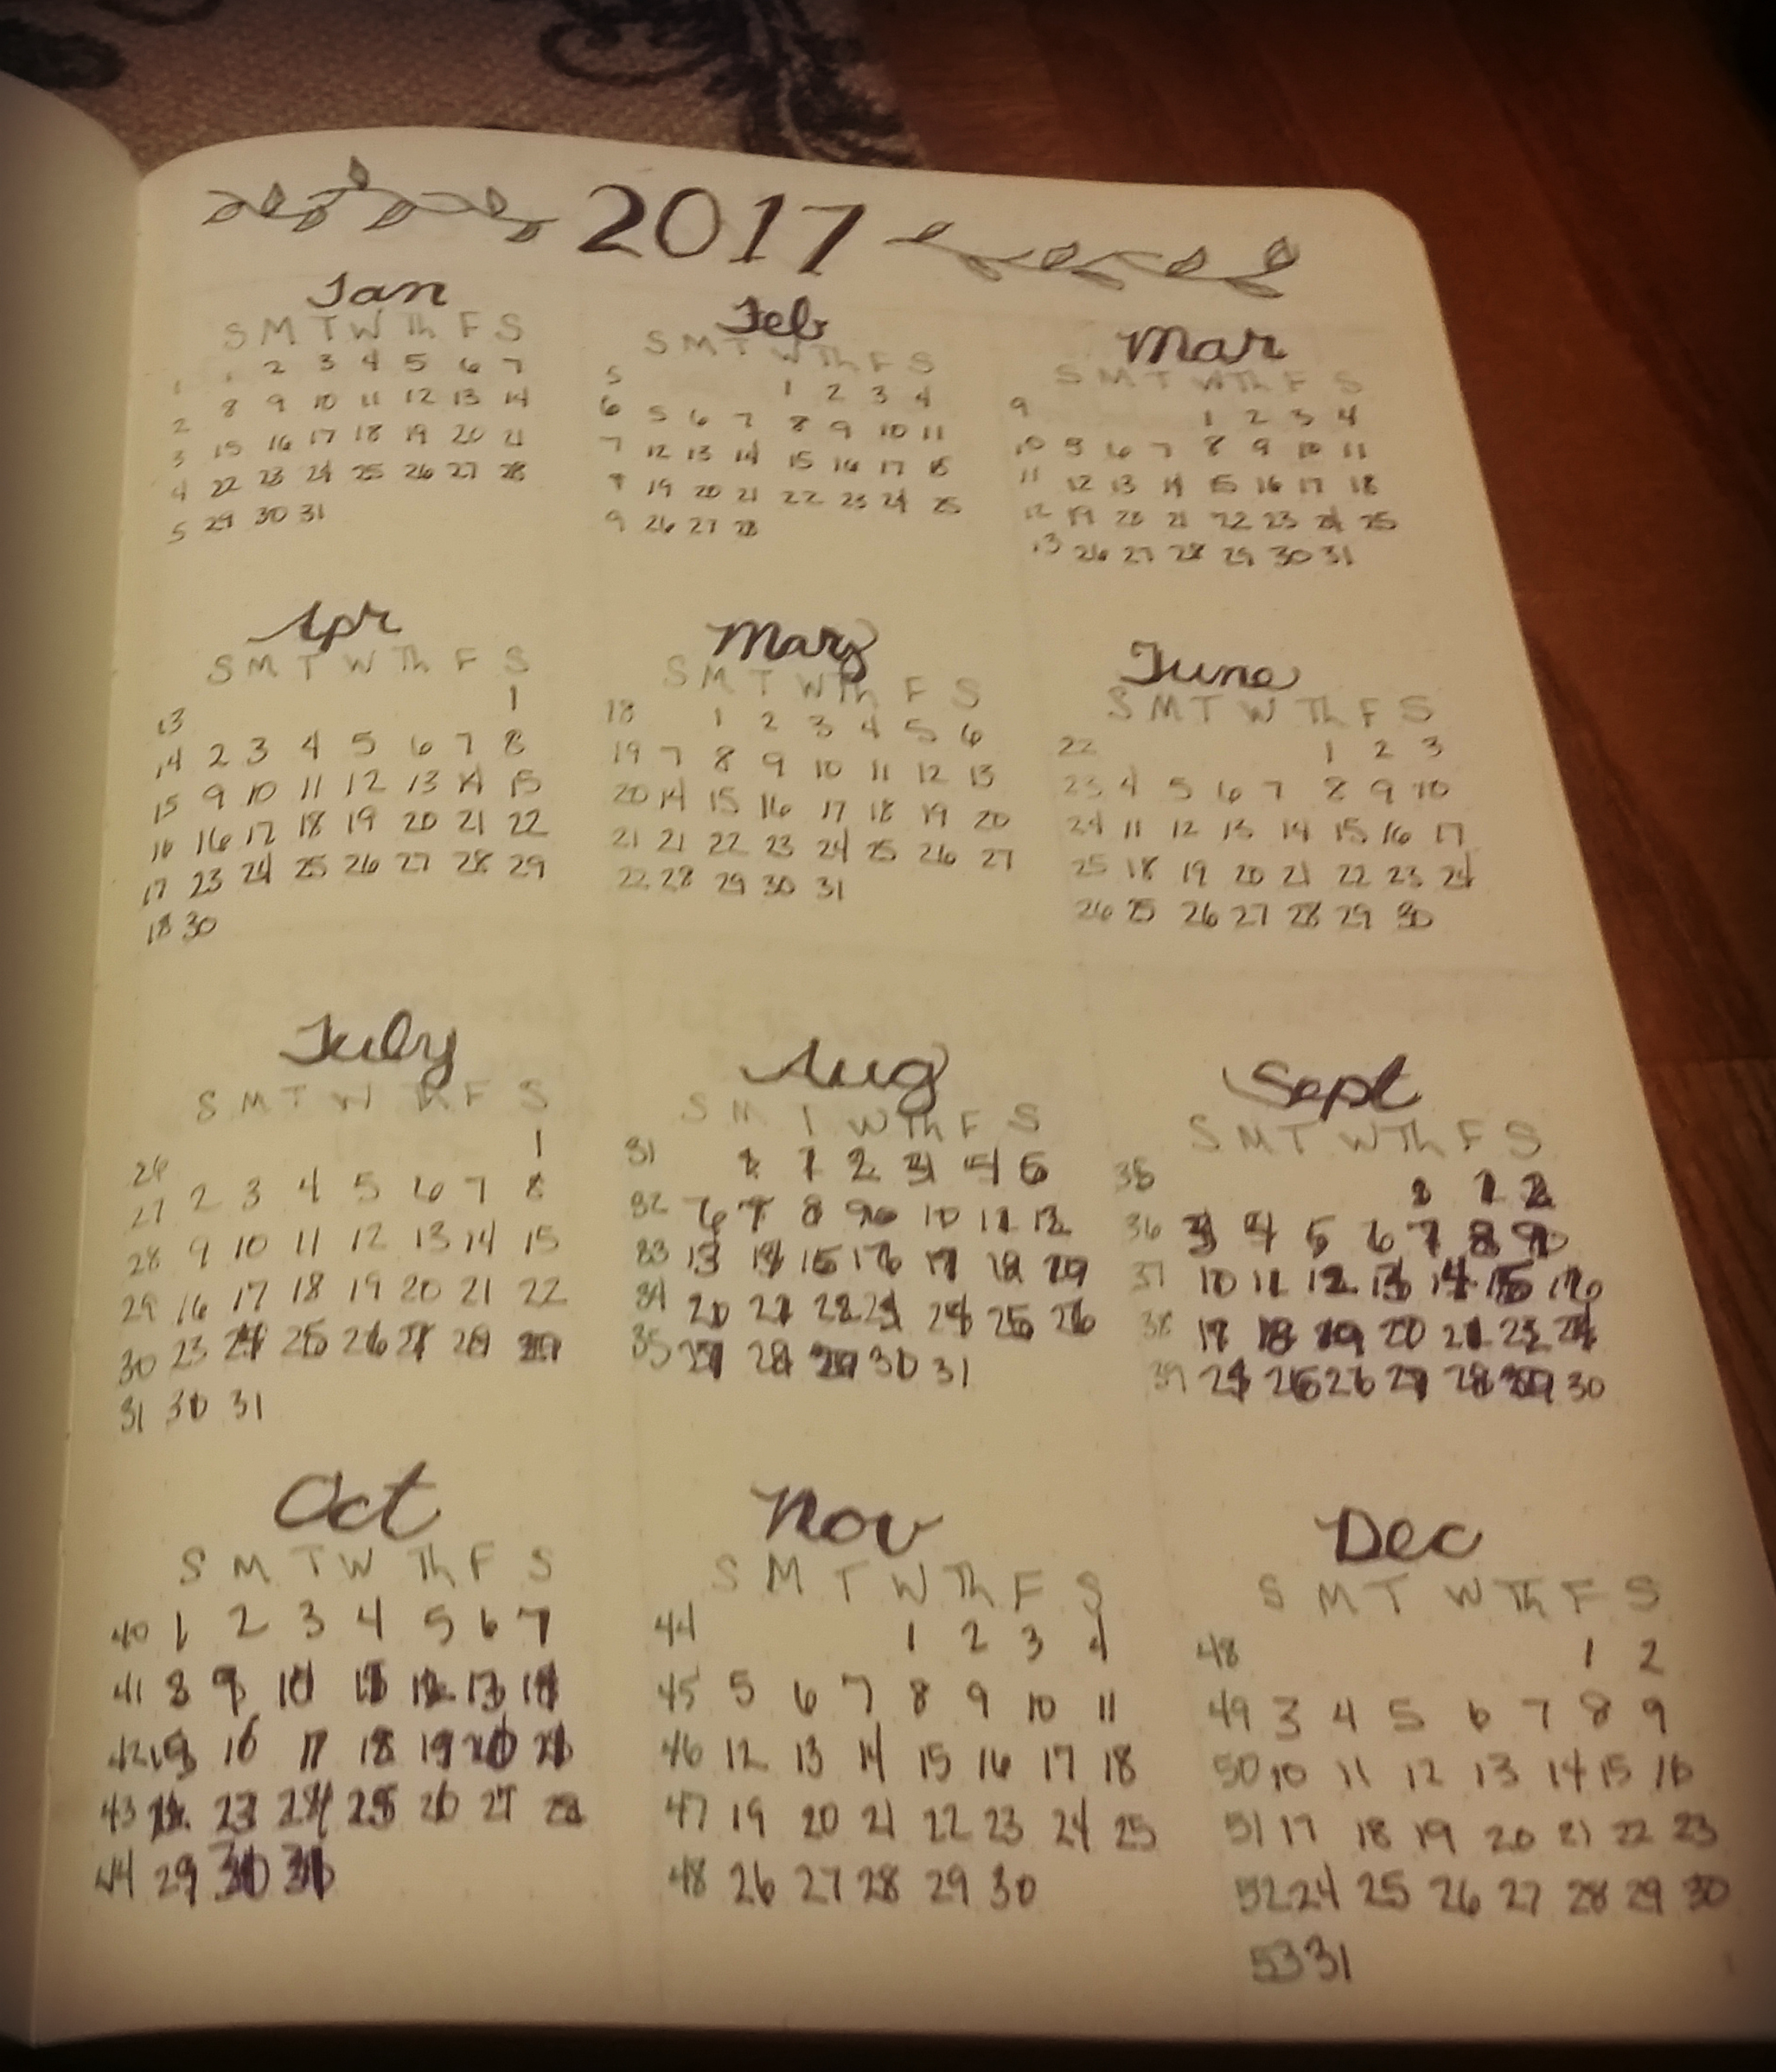 2017
Jan
S M T W Th F S
1 1 2 3 4 5 6 7
2 8 9 10 11 12 13 14
3 15 16 17 18 19 20 21
4 22 23 24 25 26 27 28
5 29 30 31
Feb
S M T W Th F S
5 1 2 3 4
6 5 6 7 8 9 10 11
7 12 13 14 15 16 17 18
8 19 20 21 22 23 24 25
9 26 27 28
Mar
S M T W Th F S
9 1 2 3 4
10 5 6 7 8 9 10 11
11 12 13 14 15 16 17 18
12 19 20 21 22 23 24 25
13 26 27 28 29 30 31
Apr
S M T W Th F S
13 1
14 2 3 4 5 6 7 8
15 9 10 11 12 13 14 15
16 16 17 18 19 20 21 22
17 23 24 25 26 27 28 29
18 30
May
S M T W Th F S
18 1 2 3 4 5 6
19 7 8 9 10 11 12 13
20 14 15 16 17 18 19 20
21 21 22 23 24 25 26 27
22 28 29 30 31
June
S M T W Th F S
22 1 2 3
23 4 5 6 7 8 9 10
24 11 12 13 14 15 16 17
25 18 19 20 21 22 23 24
26 25 26 27 28 29 30
July
S M T W Th F S
26 1
27 2 3 4 5 6 7 8
28 9 10 11 12 13 14 15
29 16 17 18 19 20 21 22
30 23 24 25 26 27 28 29
31 30 31
Aug
S M T W Th F S
31 1 2 3 4 5
32 6 7 8 9 10 11 12
33 13 14 15 16 17 18 19
34 20 21 22 23 24 25 26
35 27 28 29 30 31
Sept
S M T W Th F S
35 1 2
36 3 4 5 6 7 8 9
37 10 11 12 13 14 15 16
38 17 18 19 20 21 22 23
39 24 25 26 27 28 29 30
Oct
S M T W Th F S
40 1 2 3 4 5 6 7
41 8 9 10 11 12 13 14
42 15 16 17 18 19 20 21
43 22 23 24 25 26 27 28
44 29 30 31
Nov
S M T W Th F S
44 1 2 3 4
45 5 6 7 8 9 10 11
46 12 13 14 15 16 17 18
47 19 20 21 22 23 24 25
48 26 27 28 29 30
Dec
S M T W Th F S
48 1 2
49 3 4 5 6 7 8 9
50 10 11 12 13 14 15 16
51 17 18 19 20 21 22 23
52 24 25 26 27 28 29 30
53 31